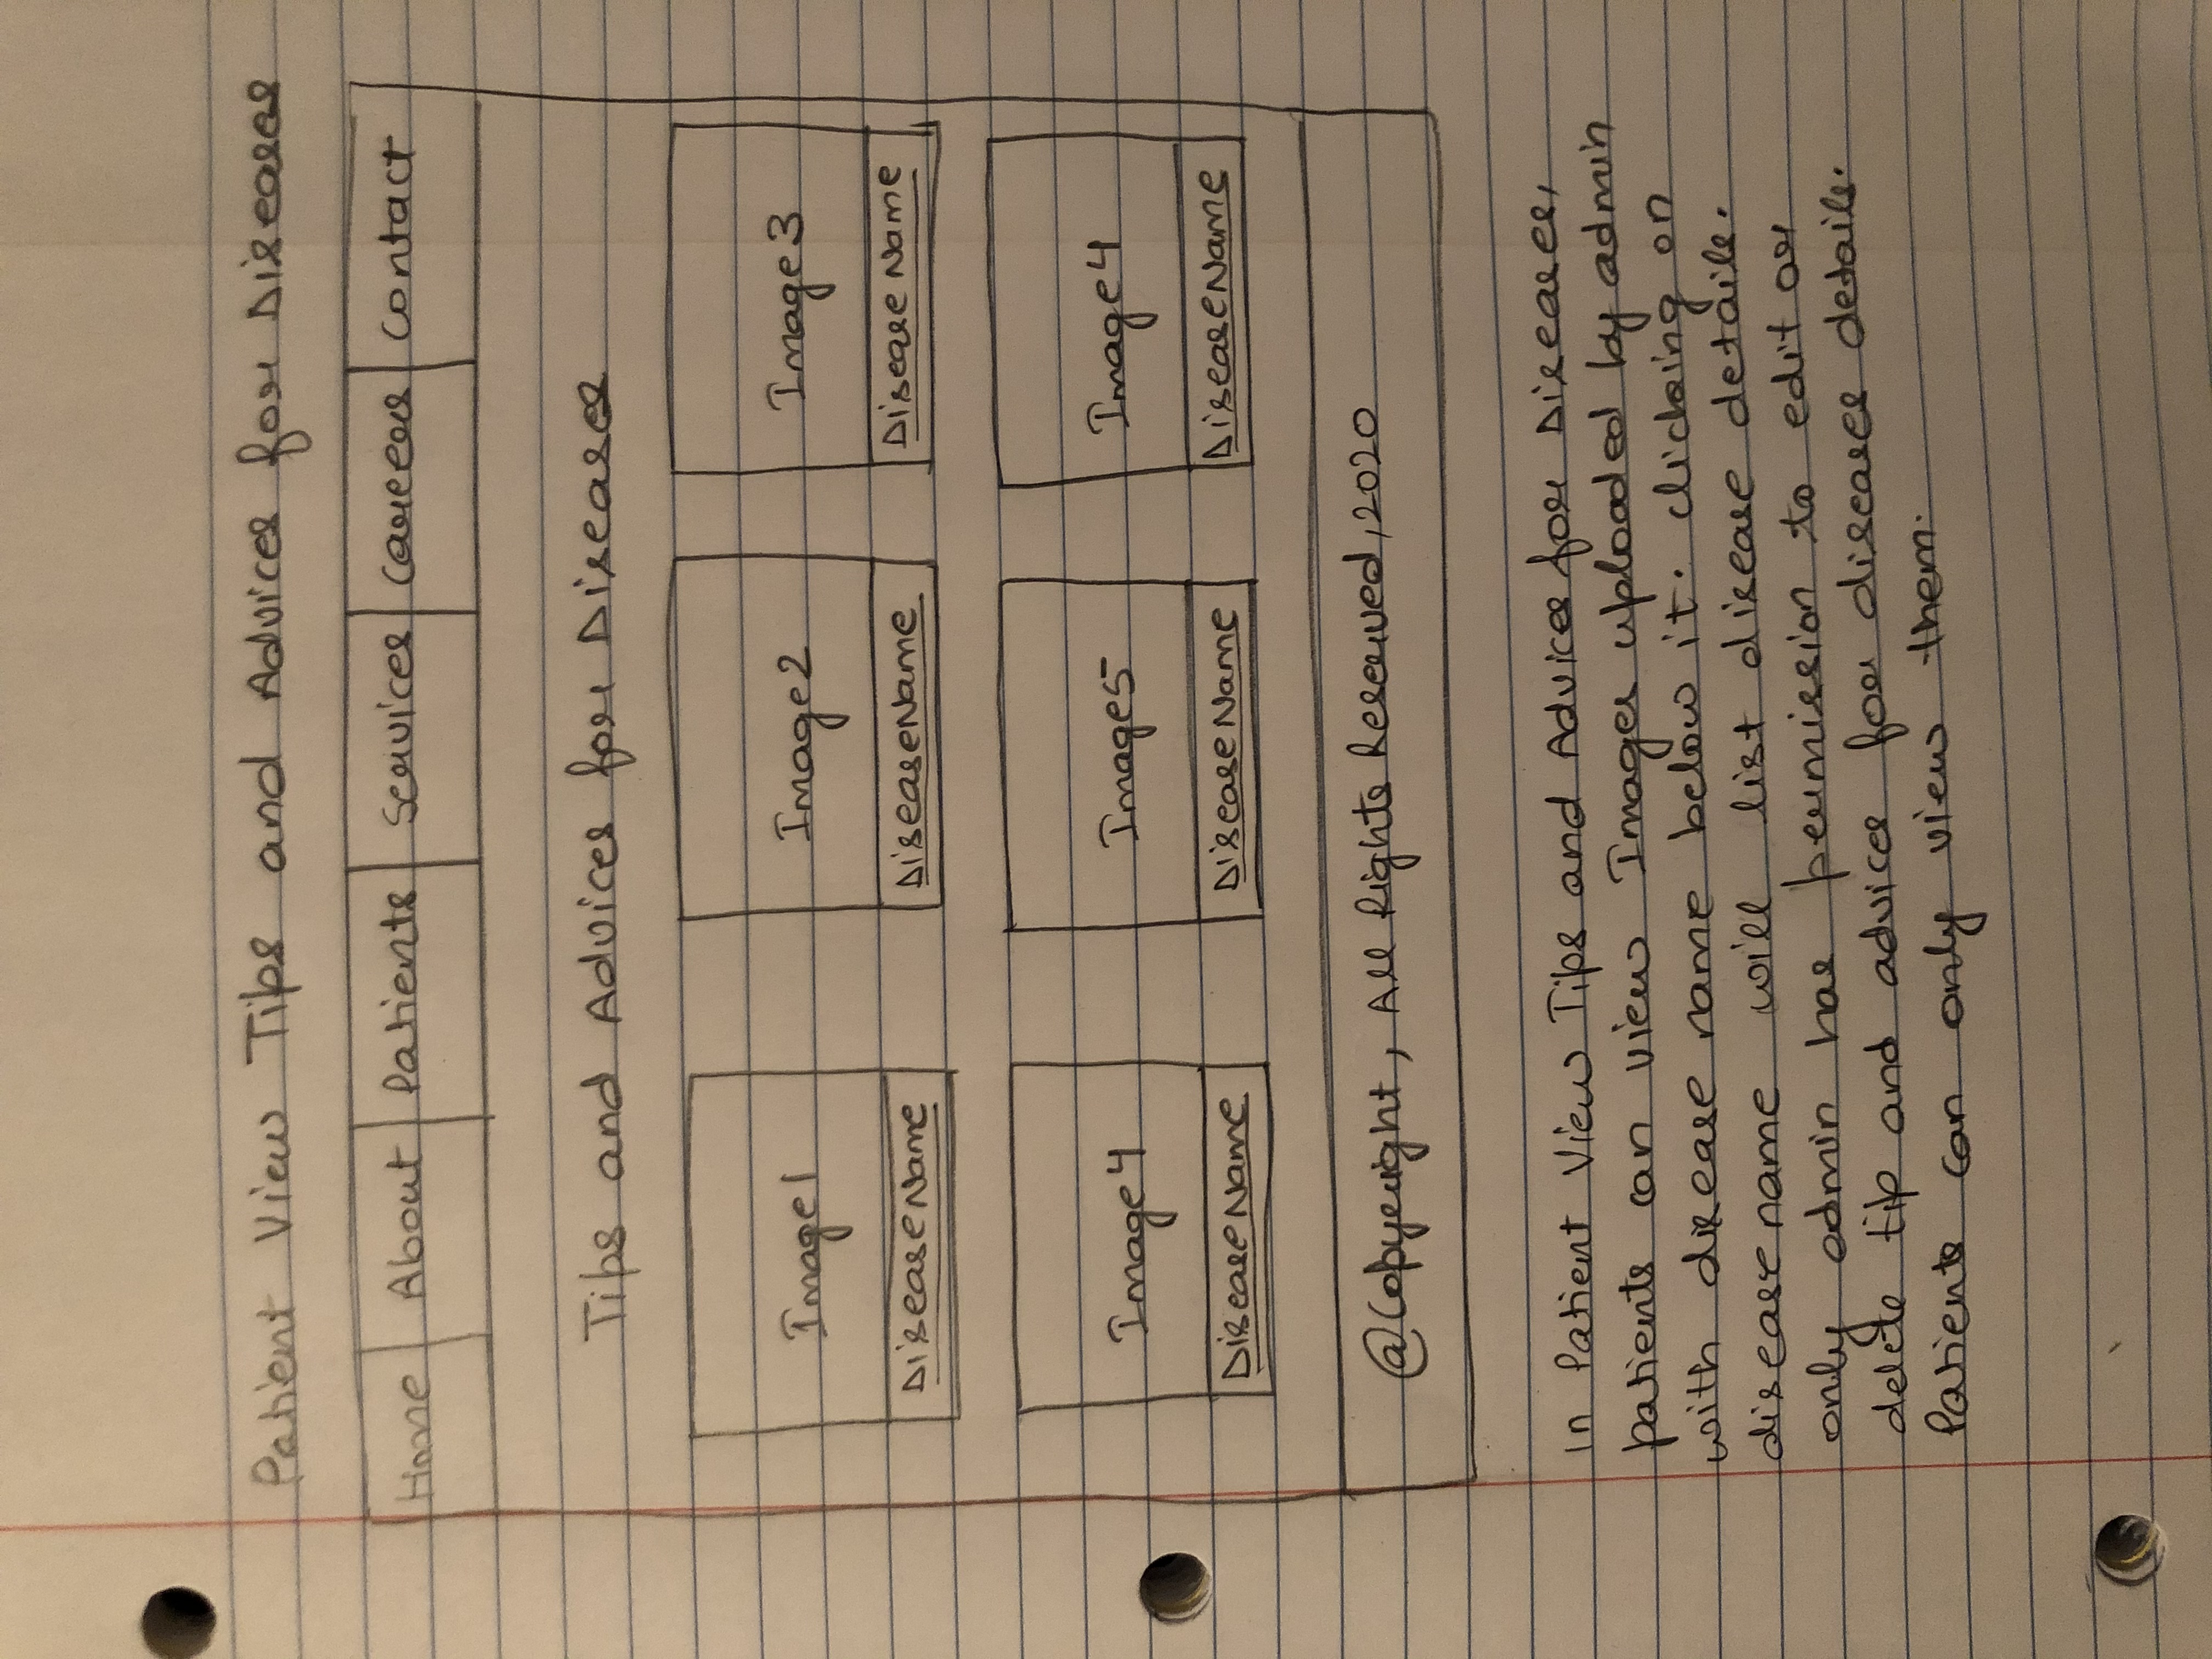 Patient View Tips and Advices for Diseases
Home About Patients Services Careers Contact
Tips and Advices for Diseases
Image1 Image2 Image3
DiseaseName DiseaseName Disease Name
Image4 Image5 Image4
DiseaseName Disease Name DiseaseName
@Copyright, All Rights Reserved, 2020
In Patient View Tips and Advices for Diseases,
patients can view Images uploaded by admin
with disease name below it. clicking on
disease name will list disease details.
only admin has permission to edit or
delete tip and advices for diseases details.
Patients can only view them.